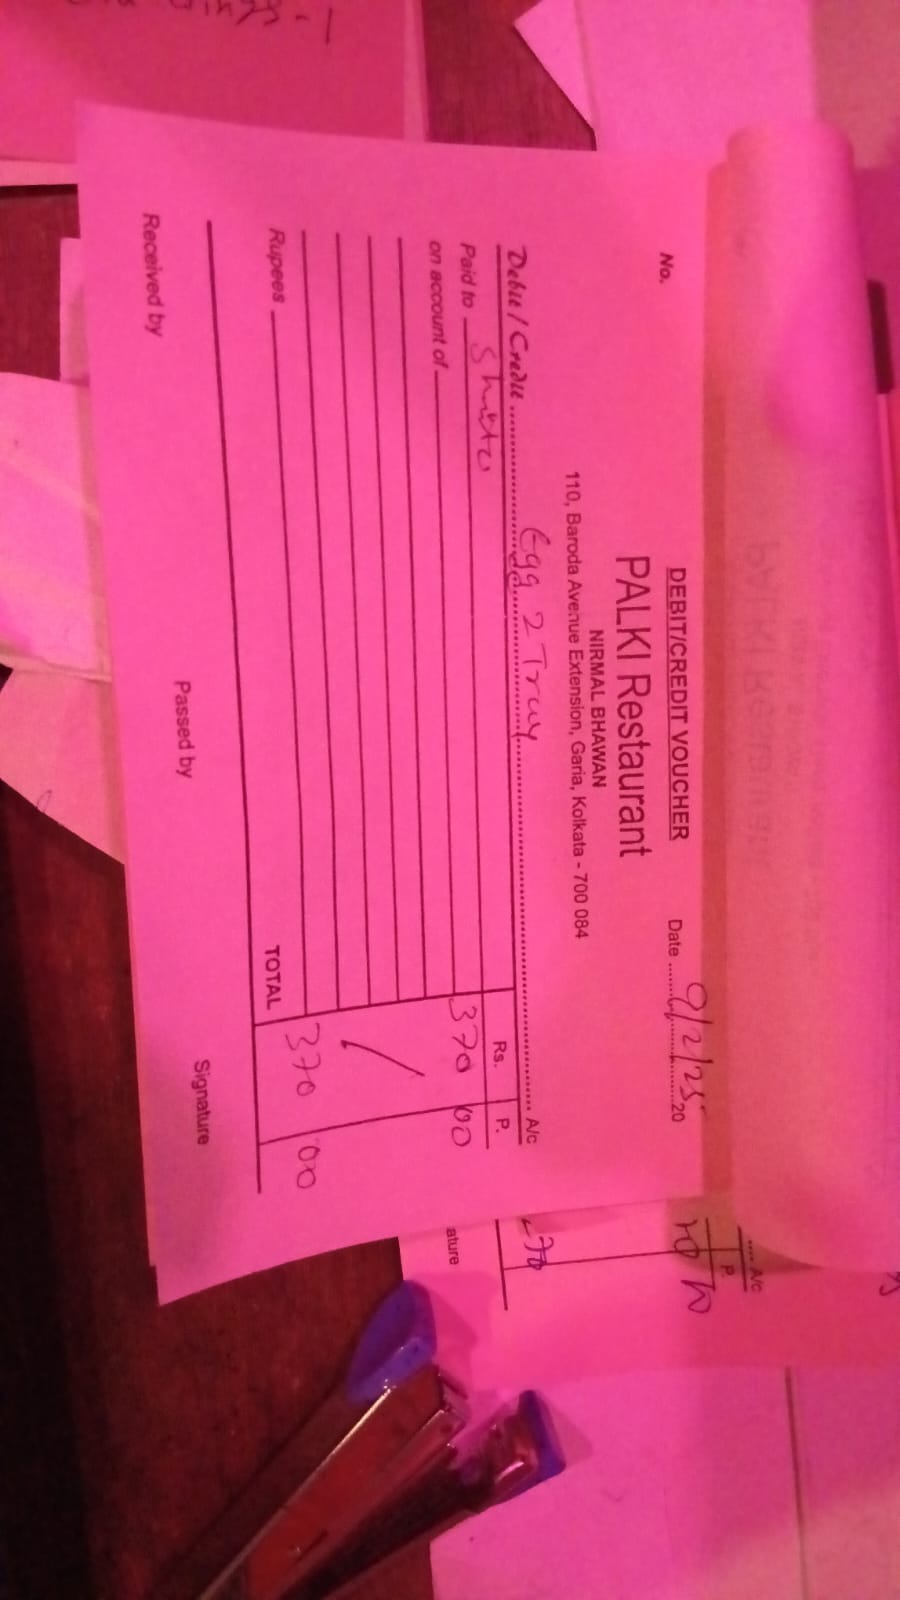 DEBIT/CREDIT VOUCHER
No.
Date 9/2/25 20
PALKI Restaurant
NIRMAL BHAWAN
110, Baroda Avenue Extension, Garia, Kolkata - 700 084
Debit / Credit Egg 2 Tray A/c
Rs. P.
Paid to 370 00
on account of
Rupees
TOTAL 370 00
Received by Passed by Signature
A/c
P.
ature